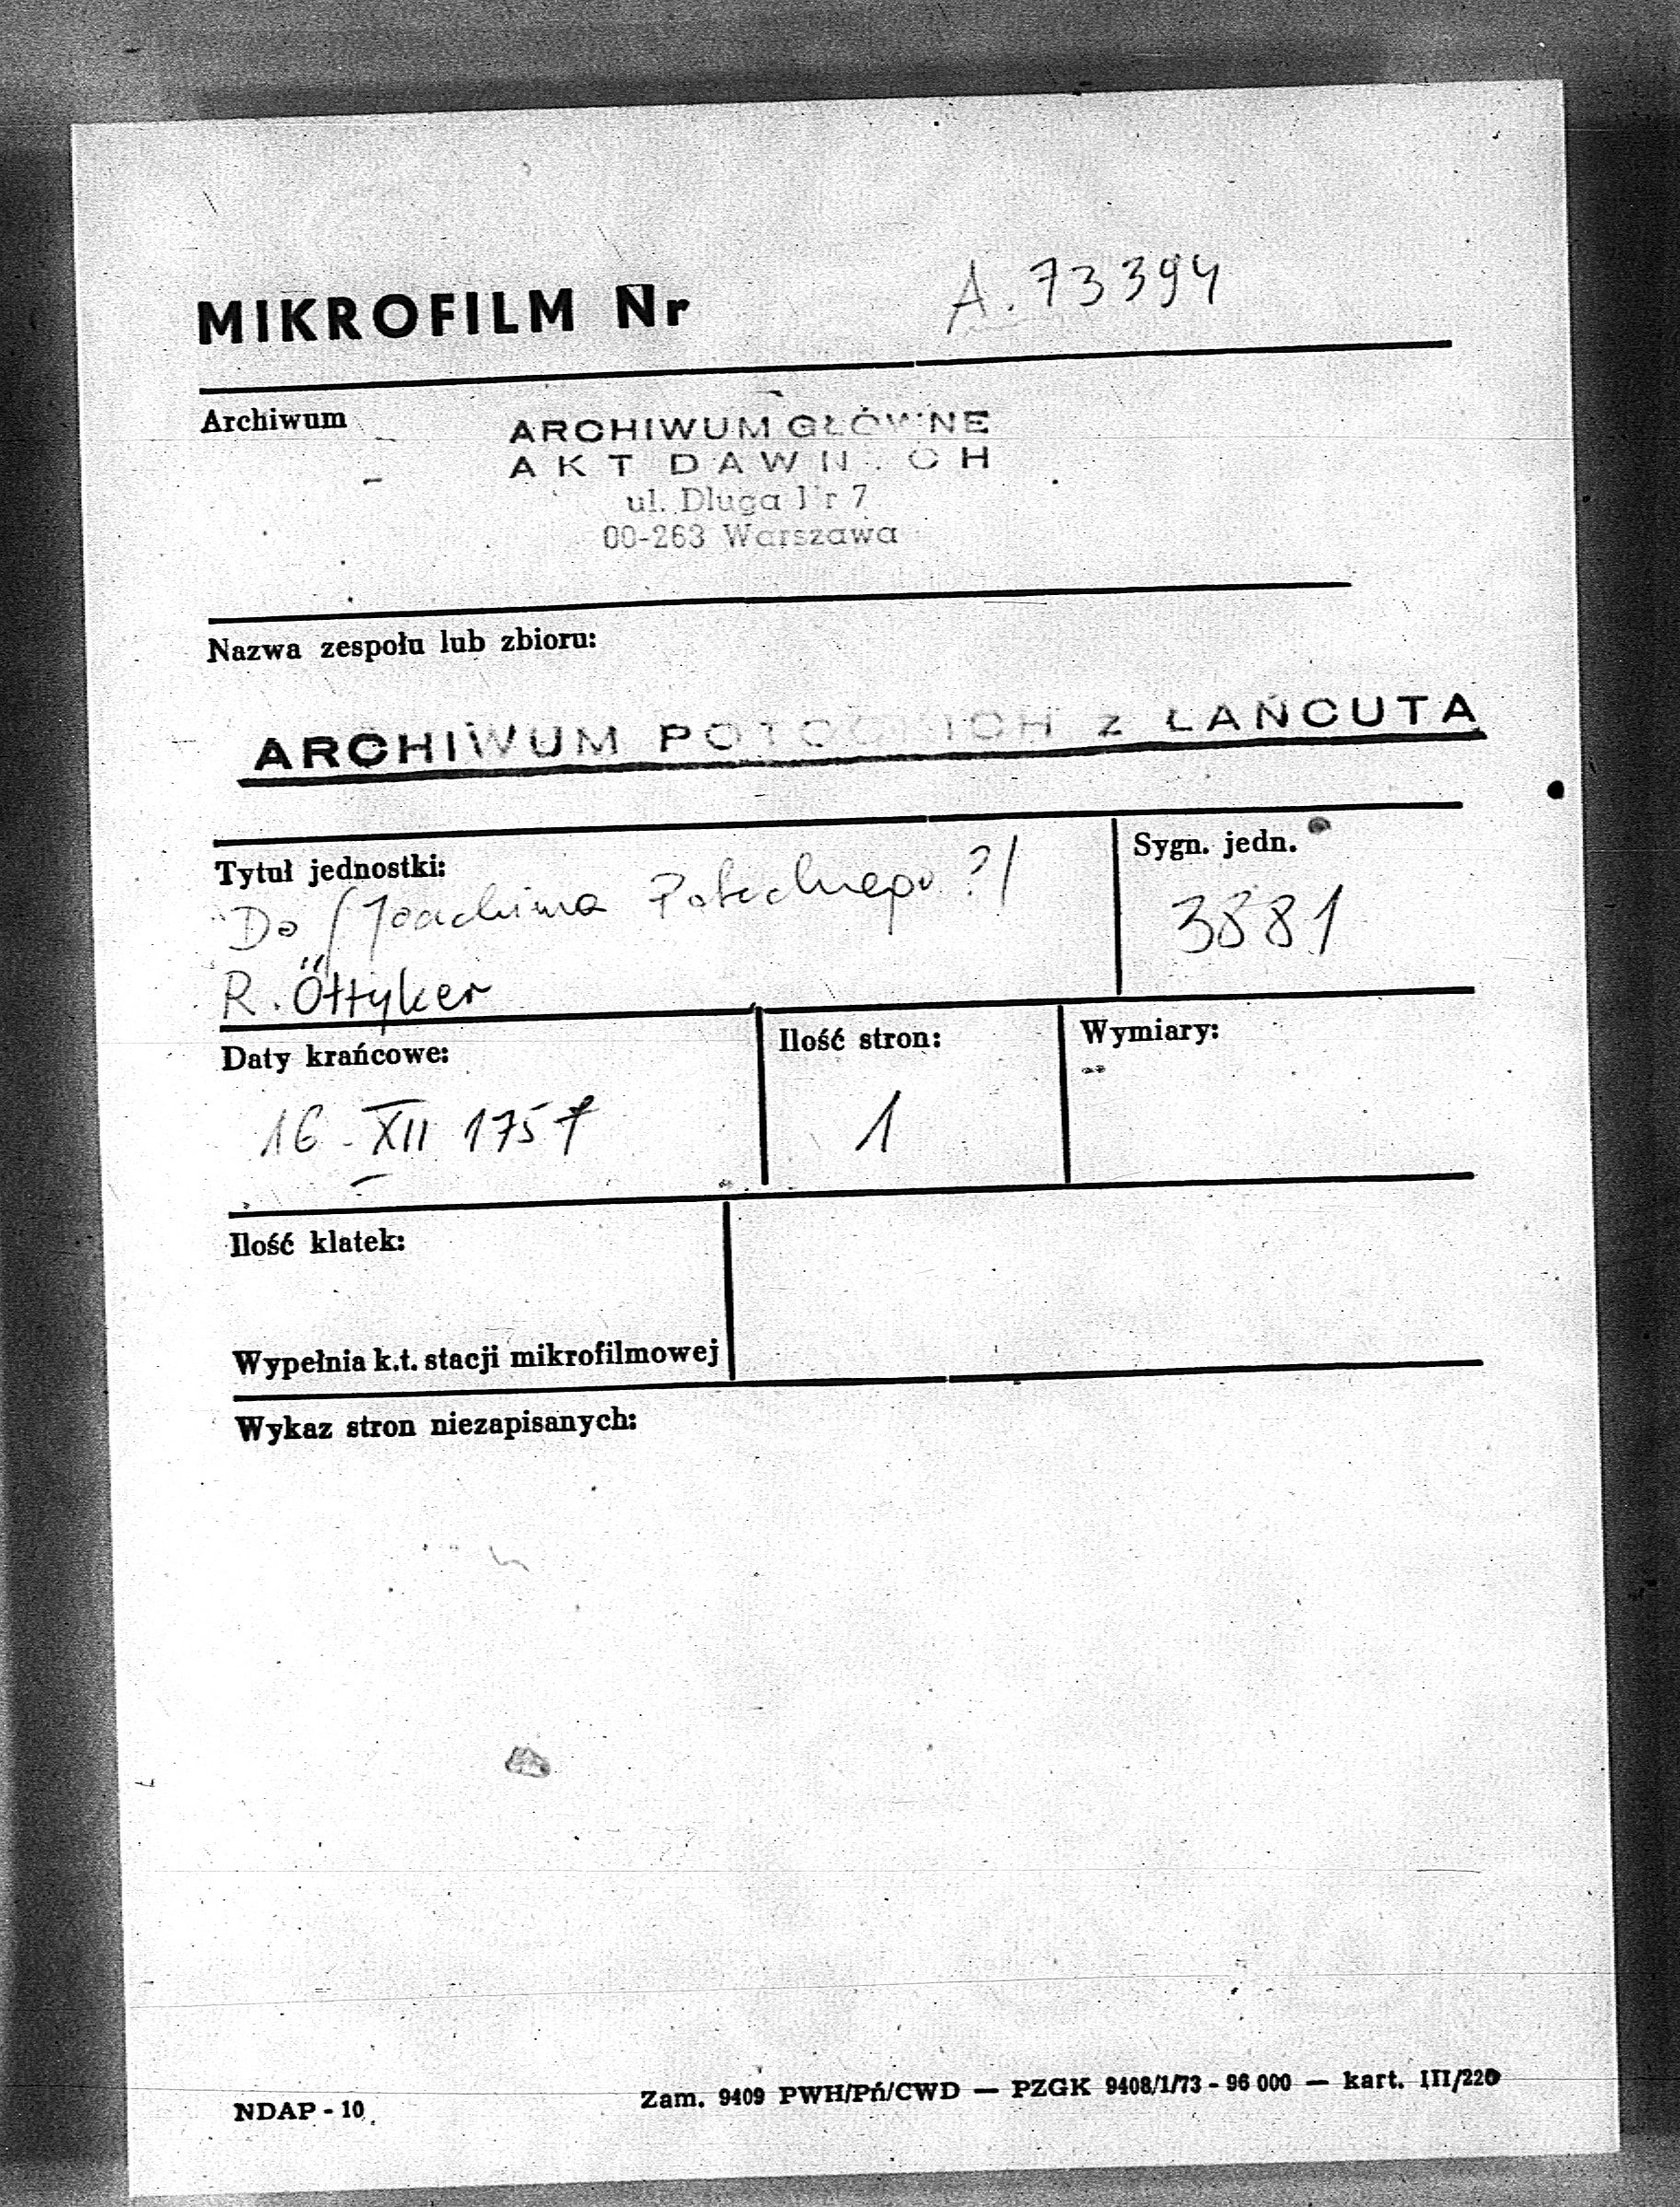 MIKROFILM Nr A. 73394
Archiwum
ARCHIWUM GŁÓWNE
AKT DAWNYCH
ul. Długa Nr 7
00-263 Warszawa
Nazwa zespołu lub zbioru:
ARCHIWUM POTOCKICH z ŁAŃCUTA
Tytuł jednostki:
Do /Joachima Potockiego ?/
R. Öttyker
Sygn. jedn.
3881
Daty krańcowe:
16 - XII 1757
Ilość stron:
1
Wymiary:
Ilość klatek:
Wypełnia k.t. stacji mikrofilmowej
Wykaz stron niezapisanych:
NDAP - 10
Zam. 9409 PWH/Pń/CWD — PZGK 9408/1/73 - 96 000 — kart. III/220